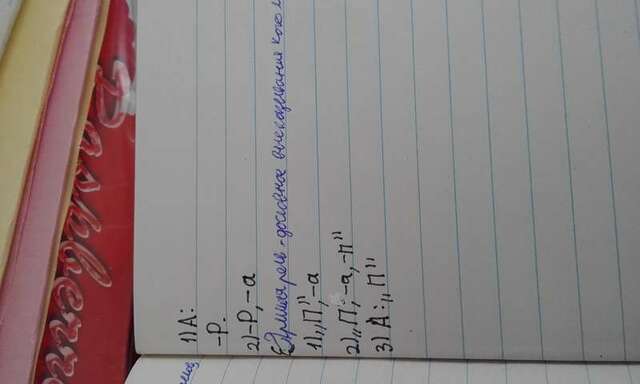 1) А:
-Р.
2) -Р, -а
Прямая речь - дословное высказывания кого
1) „П", -а
2) „П, -а, -п"
3) А: „П"